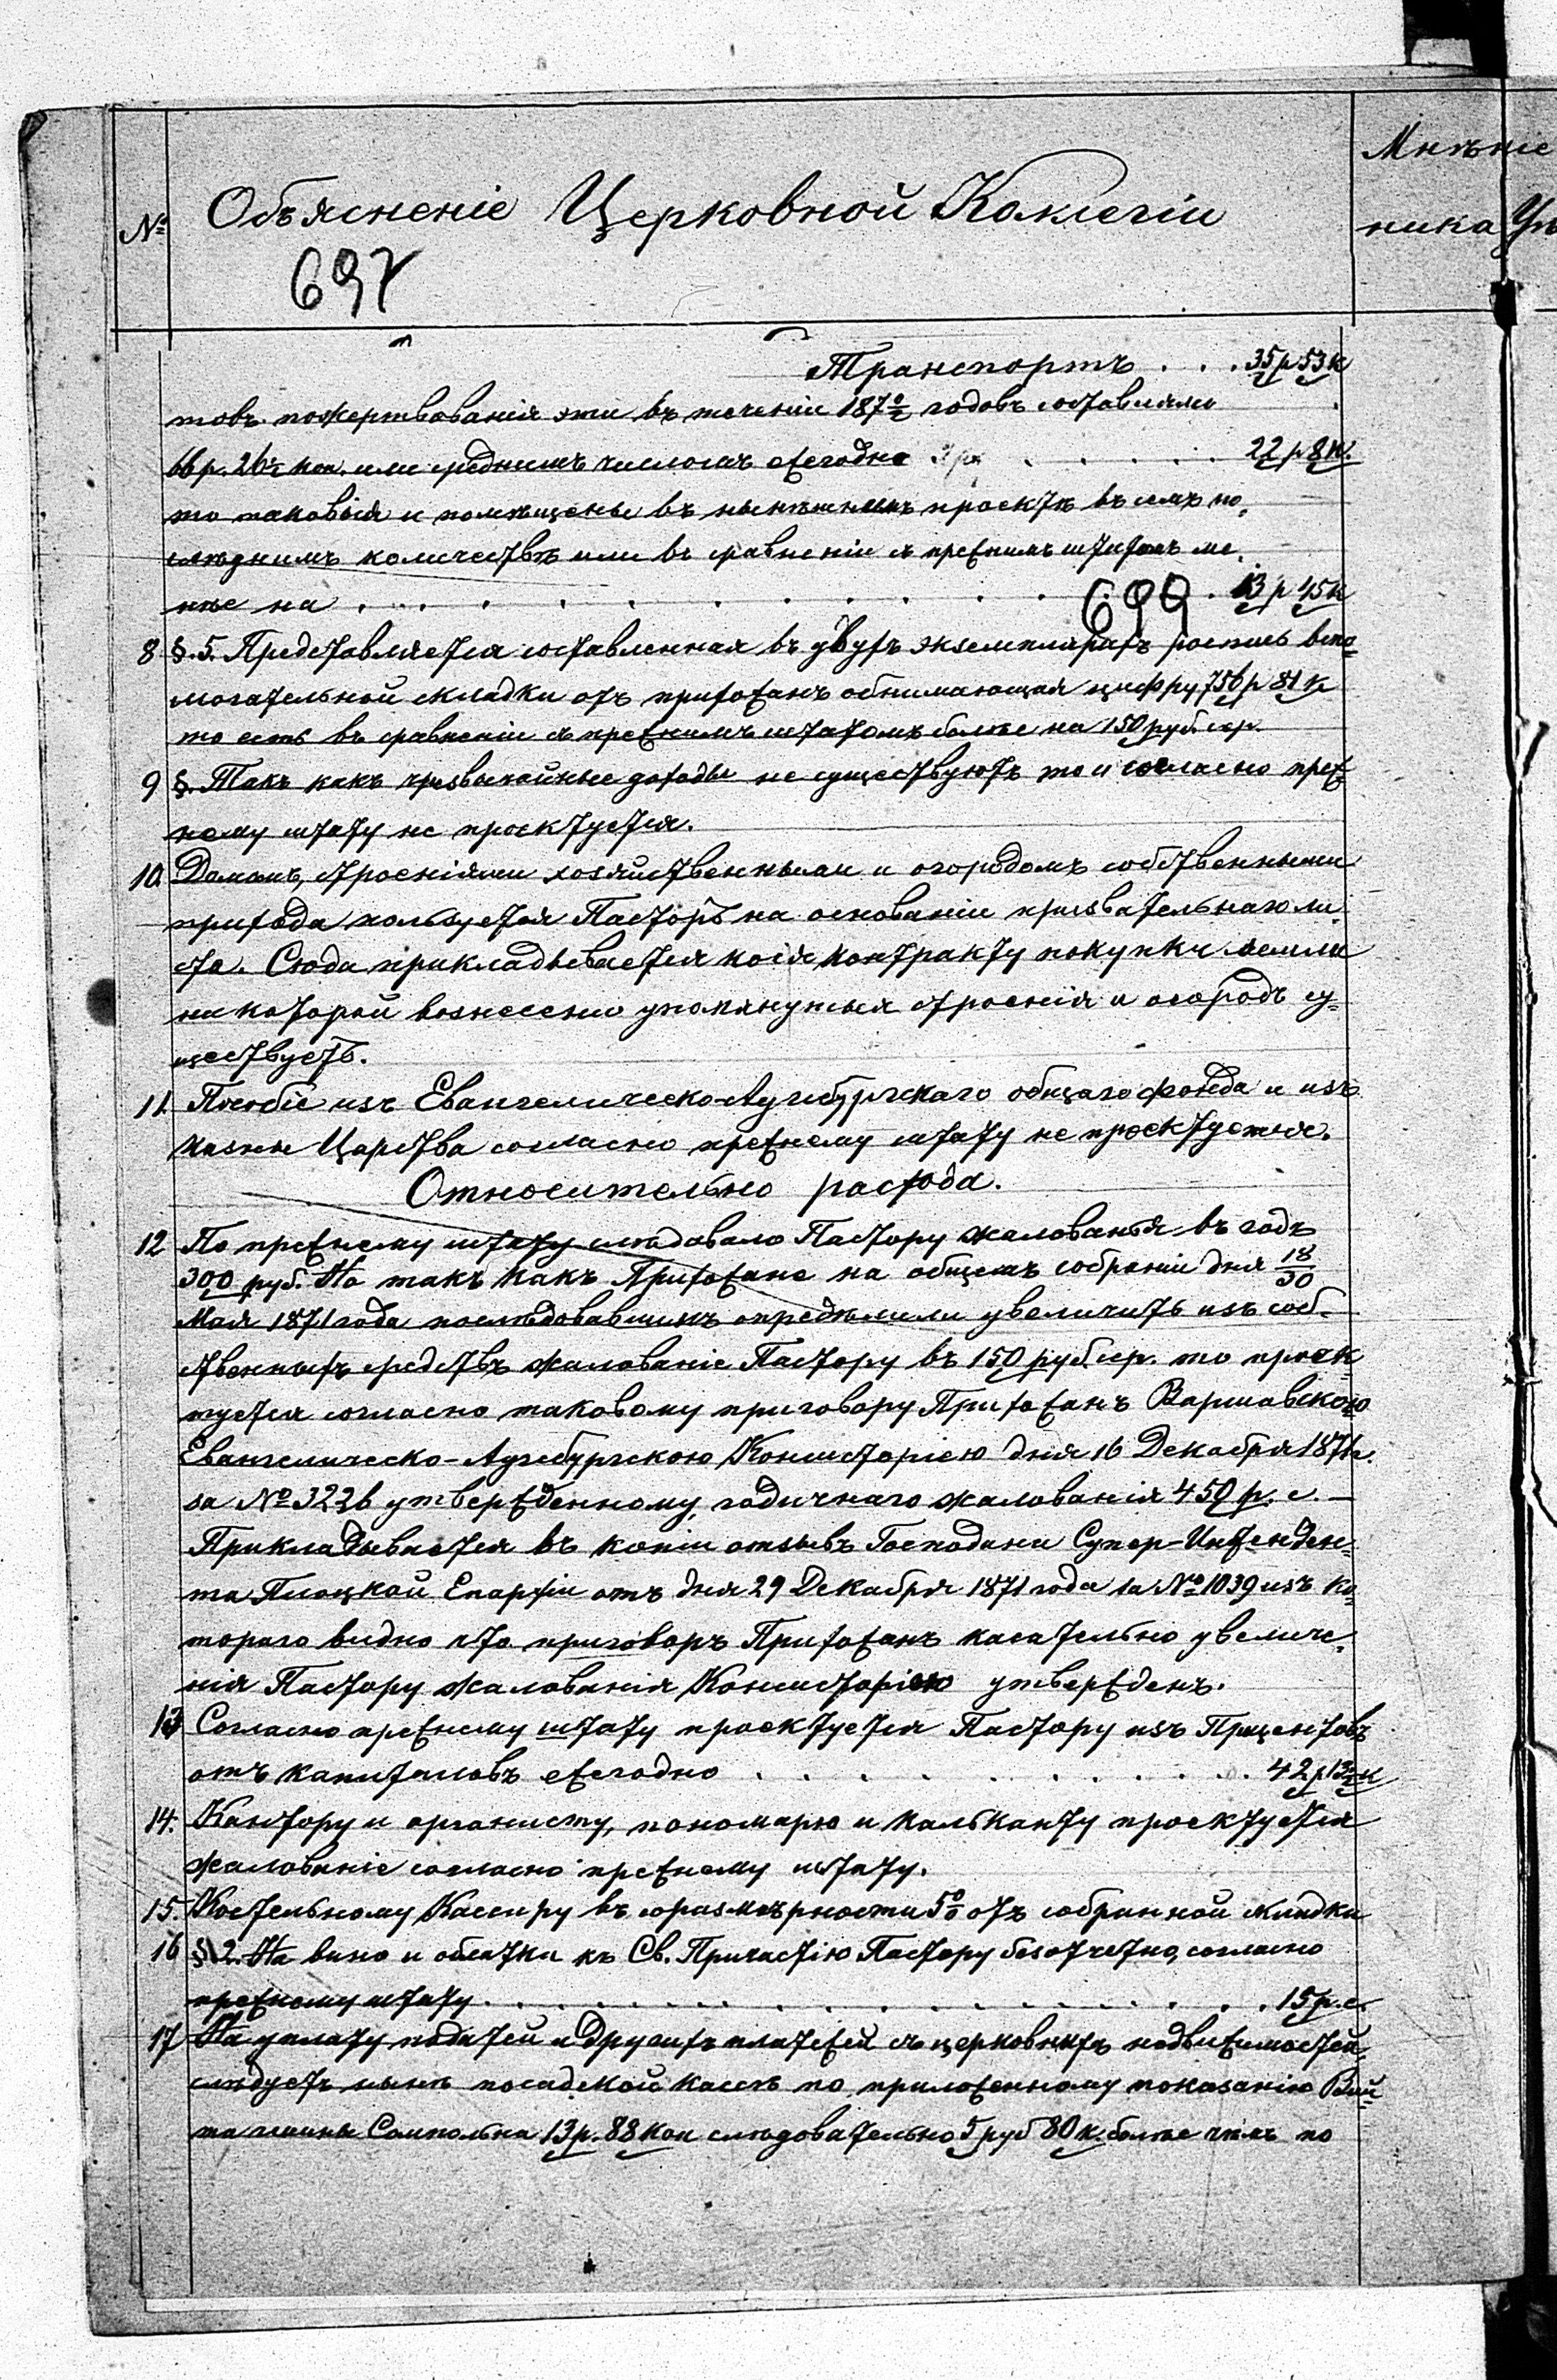 Мнѣніе
ника Уѣ
№
Объясненіе Церковной Коллегіи
697
Транспортъ . . . 35 р 53 к
товъ. пожертвованія эти въ теченіи 187 0/2 годовъ составляли
66 р. 26½ коп. или среднимъ числомъ ежегодно . . . . . 22 р 8 к.
то таковыя и помѣщены въ нынѣшнемъ проектѣ въ семъ по-
слѣднимъ количествѣ или въ сравненіи съ прежнимъ штатомъ ме-
нѣе на . . . . . . . . . . . . . 13 р 45 к
699
8 §. 5. Представляется составленная въ двухъ экземплярахъ роспись вспо-
могательной складки отъ прихожанъ обнимающая цифру 756 р 81 к
то есть въ сравненіи съ прежнимъ штатомъ болѣе на 150 руб. сер.
9 §. Такъ какъ чрезвычайные доходы не существуютъ то и согласно преж
нему штату не проектуется.
10. Домомъ, строеніями хозяйственными и огородомъ собственными
прихода пользуется Пасторъ на основаніи призвательнаго ли-
ста. Сюда прикладывается копія контракту покупки земли
на которой вознесено упомянутыя строенія и огородъ су-
ществуетъ.
11. Пособіе изъ Евангелическо-Аугсбургскаго общаго фонда и изъ
казны Царства согласно прежнему штату не проектуется.
Относительно расхода.
12 По прежнему штату слѣдовало Пастору жалованья въ годъ
300 руб. Но такъ какъ Прихожане на общемъ собраніи дня 18/30
Мая 1871 года послѣдовавшимъ опредѣлили увеличить изъ соб-
ственныхъ средствъ жалованіе Пастору въ 150 руб. сер. то проек-
туется согласно таковому приговору Прихожанъ Варшавскою
Евангелическо-Аугсбургскою Консисторіею дня 16 Декабря 1871 г.
за № 3226 утвержденному, годичнаго жалованія 450 р. с. —
Прикладывается въ копіи отзывъ Господина Супер-Интенден-
та Плоцкой Епархіи отъ дня 29 Декабря 1871 года за № 1039 изъ ко-
тораго видно что приговоръ Прихожанъ касательно увеличе-
нія Пастору жалованія Консисторіею утвержденъ.
13 Согласно прежнему штату проектуется Пастору изъ Процентовъ
отъ капиталовъ ежегодно . . . . . . . . . . 42 р 13½ к
14. Кантору и органисту, пономарю и калькантy проектуется
жалованіе согласно прежнему штату.
15. Костельному Кассиру въ соразмѣрности 5% отъ собранной складки
16 § 2. На вино и облатки къ Св. Причастію Пастору безотчетно, согласно
прежнему штату . . . . . . . . . . . . . . . . 15 р. с.
17 На уплату податей и другихъ платежей съ церковныхъ недвижимостей,
слѣдуетъ нынѣ посадской кассѣ по приложенному показанію Вой-
та гмины Сомпольна 13 р. 88 коп слѣдовательно 5 руб 80 к. болѣе чѣмъ по